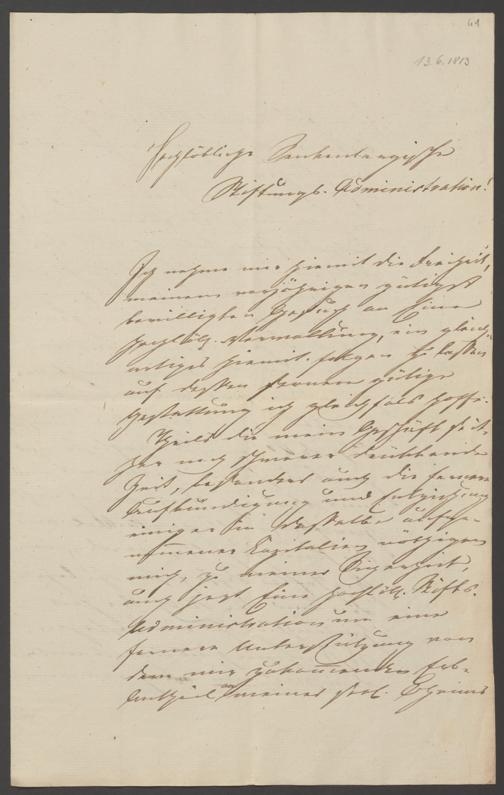 41
13.6.1813
Hochlöbliche Senkenbergische
Stiftungs-Administration!
Ich nehme mir hiemit die Freiheit,
meinem vorjährigen gütigst
bewilligten Gesuch an Eine
hochlöbl. Verwaltung, ein gleich-
artiges hiemit folgen zu lassen
auf dessen fernere gütige
Gestattung ich gleichfals hoffe.
Theils die mein Geschäft
noch schwerer drükkende
Zeit, besonders auch die fernere
Aufkündigung und Entziehung
einiger in dasselbe aufge-
nommener Kapitalien nöthigen
mich, zu meiner Sicherheit,
auch jezt Eine hochlöbl. Stifts-
Administration um eine
fernere Unterstüzung von
dem mir zukommenden Erb-
Antheil meines sel. Oheims